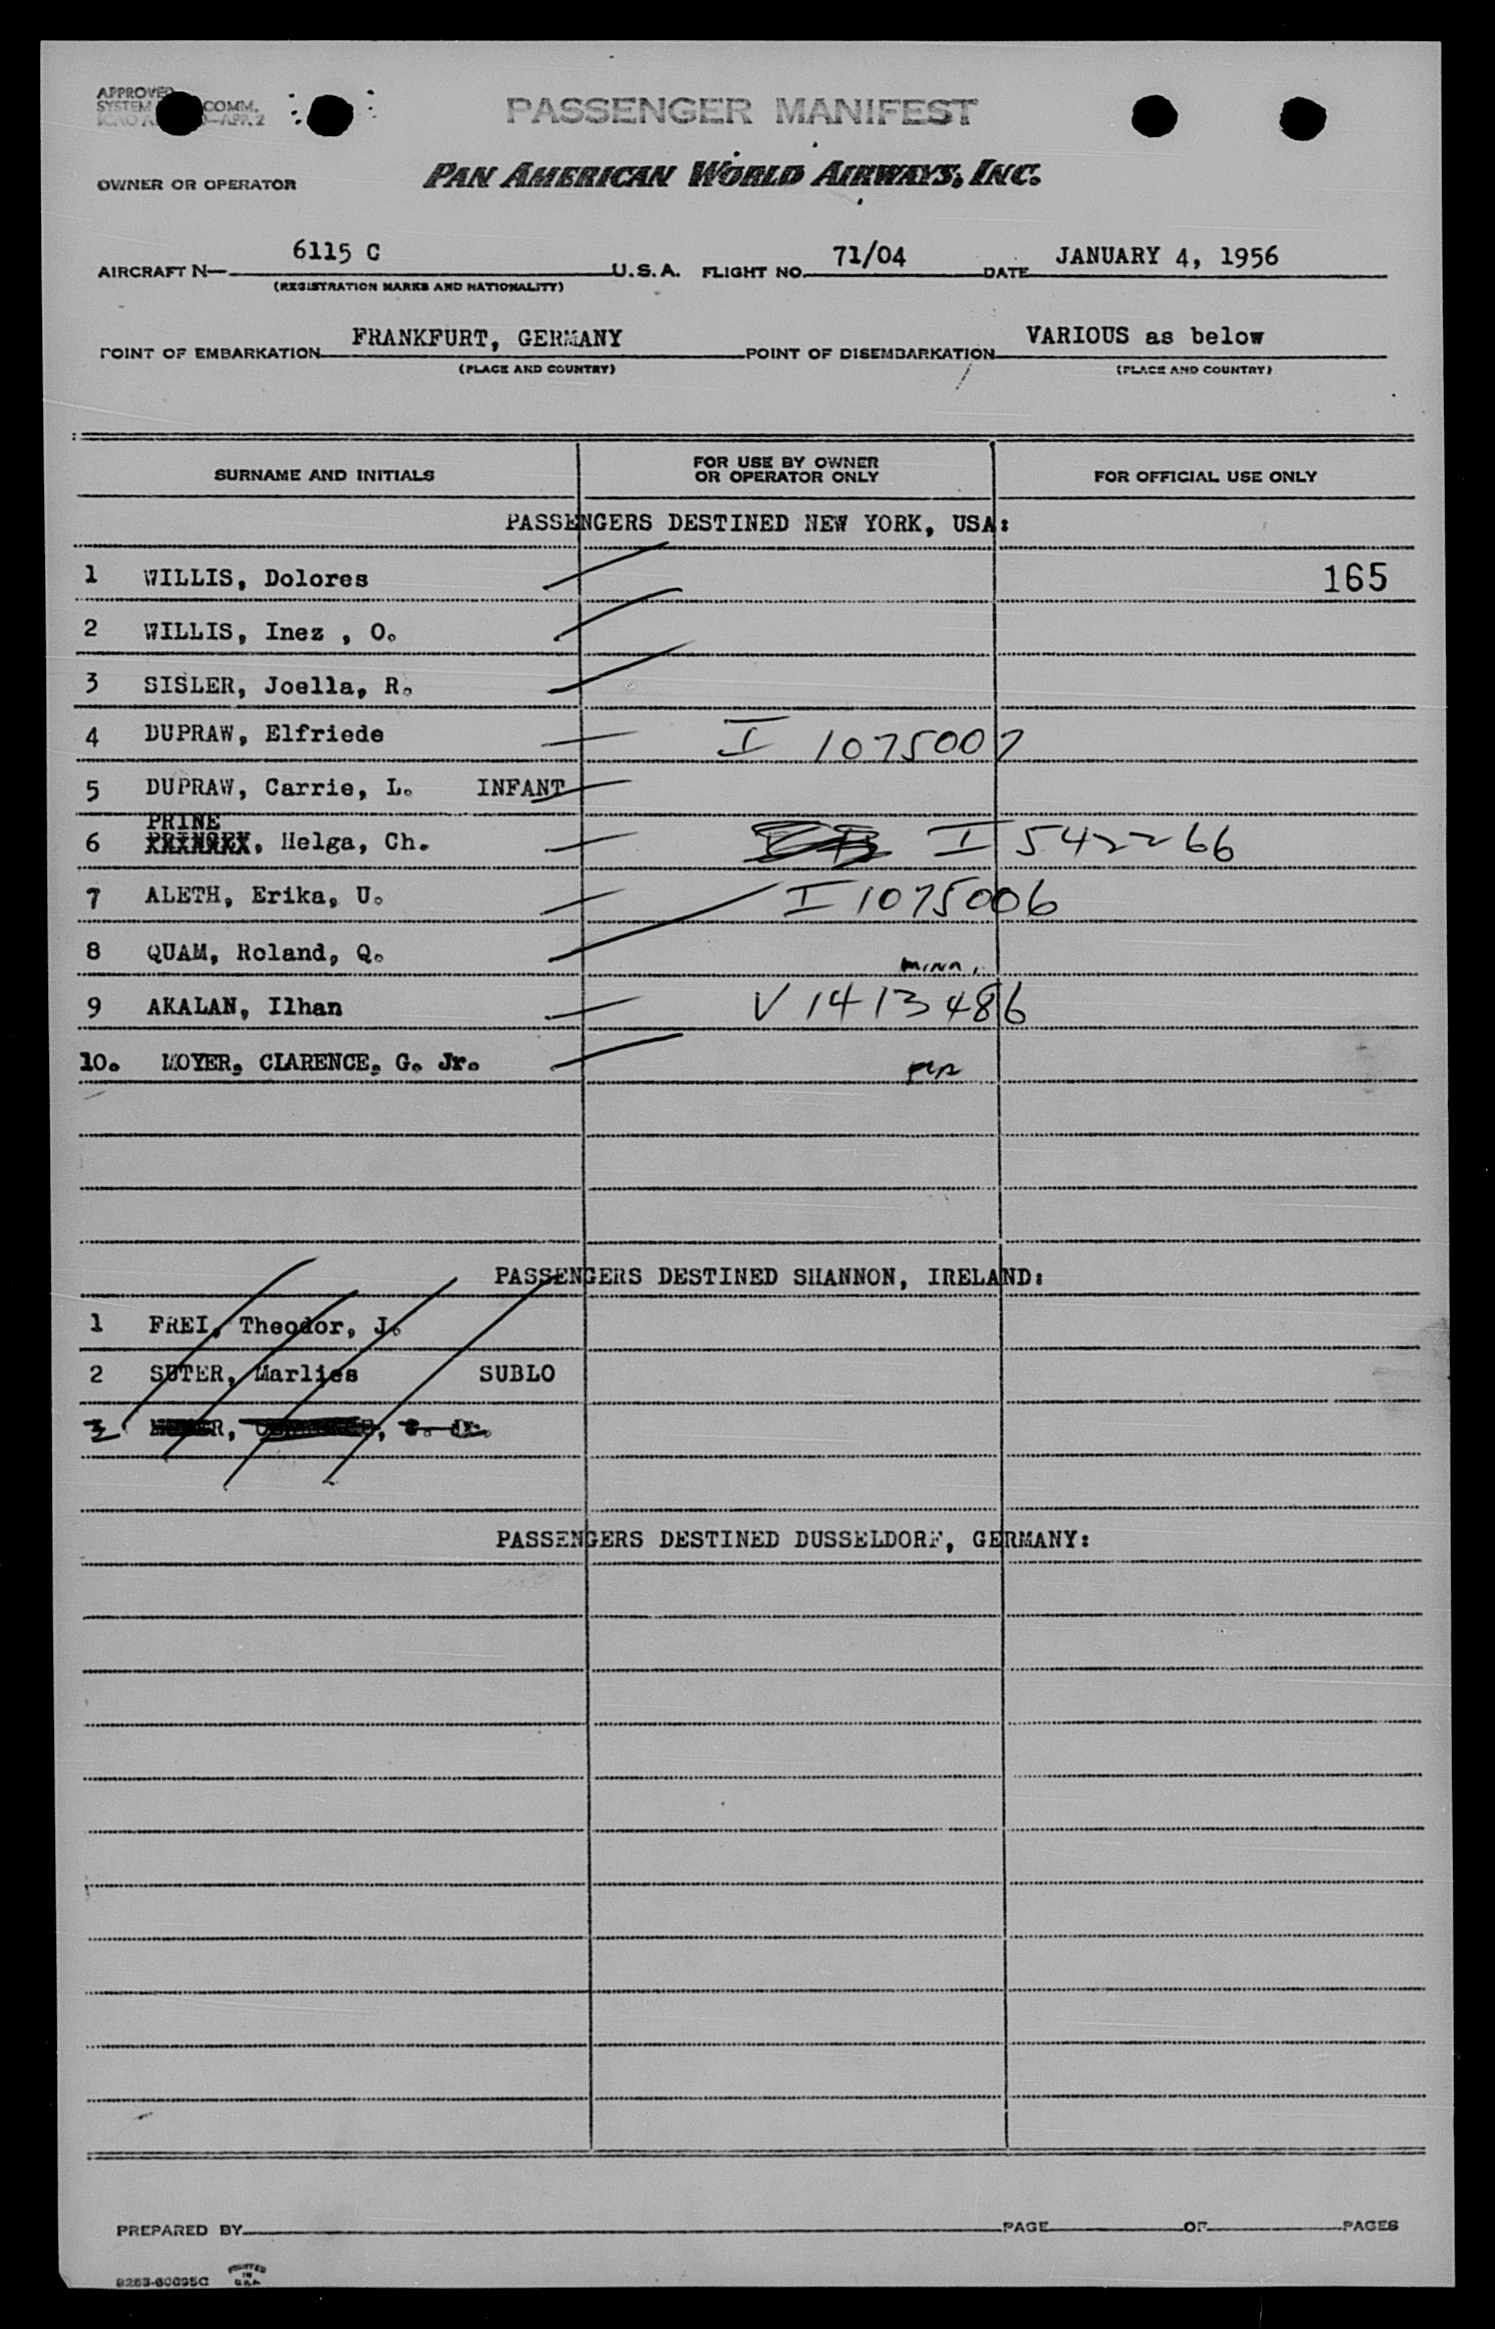 APPROVED
SYSTEM COMM.
APP. 2
PASSENGER MANIFEST
OWNER OR OPERATOR PAN AMERICAN WORLD AIRWAYS, INC.
AIRCRAFT N— 6115 C U.S.A. FLIGHT NO. 71/04 DATE JANUARY 4, 1956
(REGISTRATION MARKS AND NATIONALITY)
POINT OF EMBARKATION FRANKFURT, GERMANY POINT OF DISEMBARKATION VARIOUS as below
(PLACE AND COUNTRY) (PLACE AND COUNTRY)
SURNAME AND INITIALS FOR USE BY OWNER OR OPERATOR ONLY FOR OFFICIAL USE ONLY
PASSENGERS DESTINED NEW YORK, USA:
1 WILLIS, Dolores 165
2 WILLIS, Inez , O.
3 SISLER, Joella, R.
4 DUPRAW, Elfriede I 1075007
5 DUPRAW, Carrie, L. INFANT
PRINE
6 , Helga, Ch. I 542266
7 ALETH, Erika, U. I 1075006
8 QUAM, Roland, Q. minn.
9 AKALAN, Ilhan V 1413486
10. MOYER, CLARENCE, G. Jr.
PASSENGERS DESTINED SHANNON, IRELAND:
1 FREI, Theodor, J.
2 SUTER, Marlies SUBLO
3
PASSENGERS DESTINED DUSSELDORF, GERMANY:
PREPARED BY PAGE OF PAGES
PRINTED
IN
U.S.A.